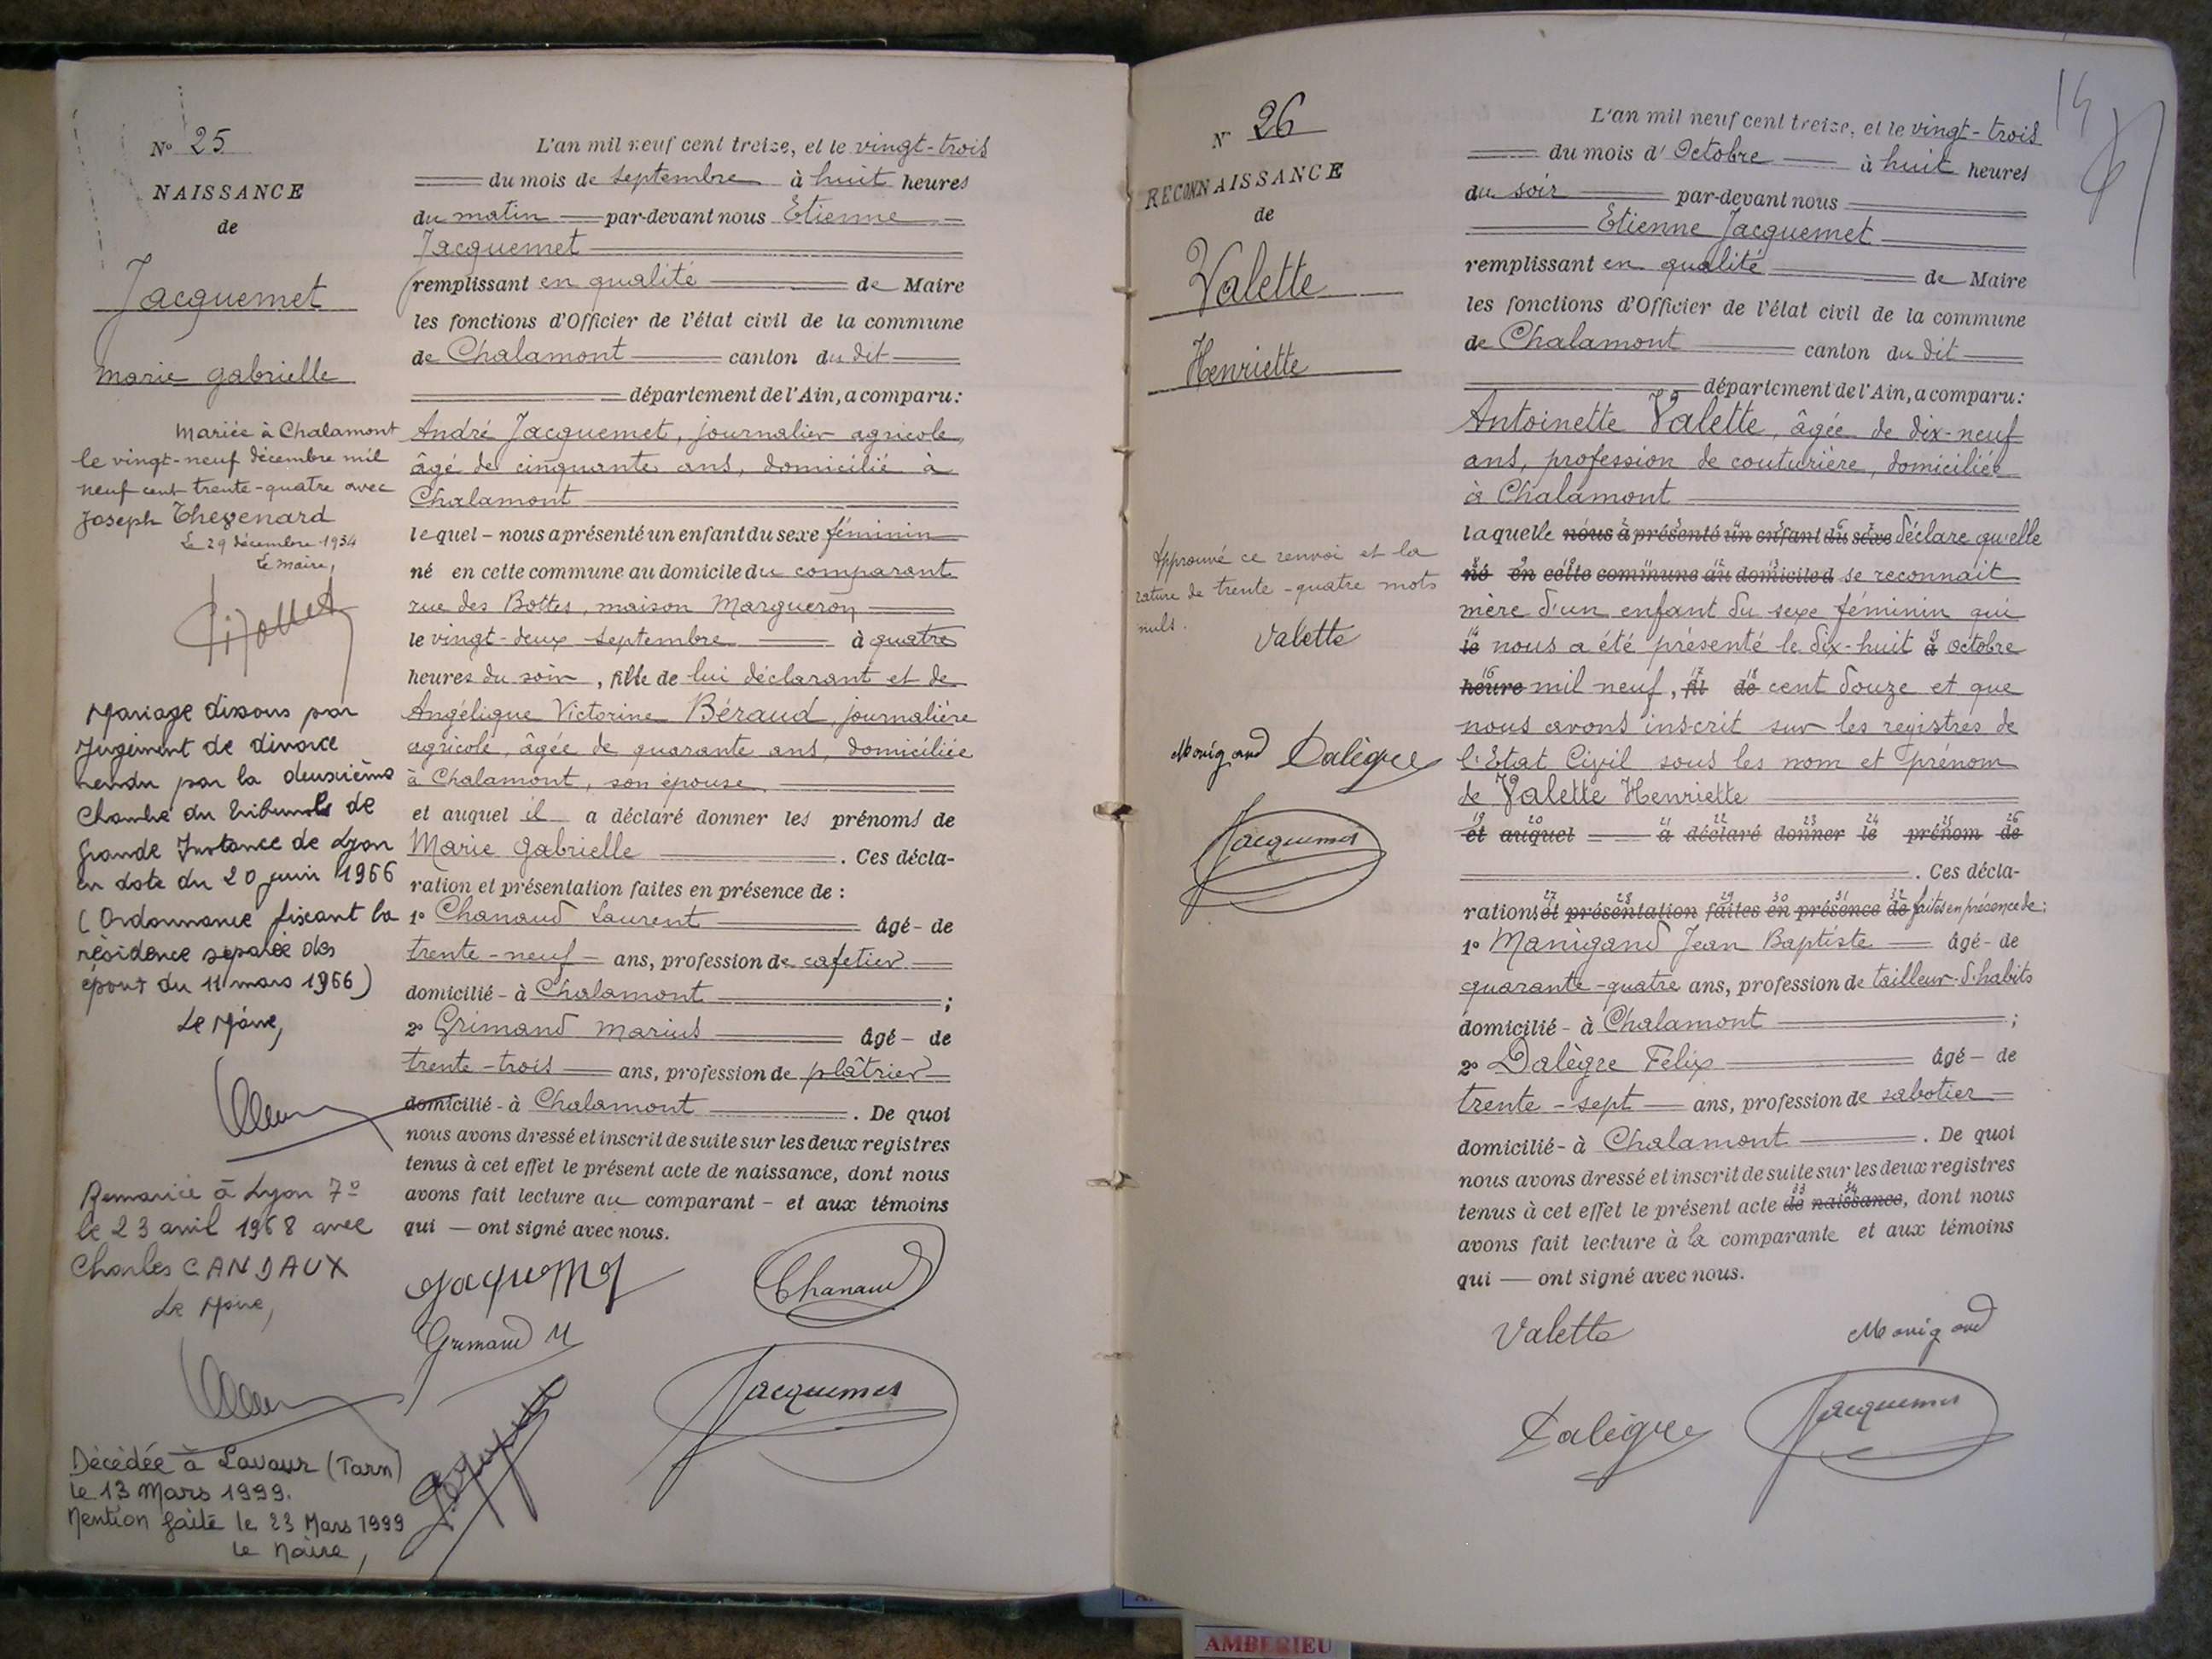 N° 25
NAISSANCE
de
Jacquemet
Marie Gabrielle
Mariée à Chalamont
le vingt-neuf décembre mil
neuf cent trente-quatre avec
Joseph Thevenard
Le 29 décembre 1934
Le Maire,
Mariage dissous par
Jugement de divorce
rendu par la deuxième
Chambre du Tribunal de
Grande Instance de Lyon
en date du 20 juin 1966
(Ordonnance fixant la
résidence séparée des
époux du 11 mars 1966)
Le Maire,
Remariée à Lyon 7e
le 23 avril 1968 avec
Charles CANDAUX
Le Maire,
Décédée à Lavaur (Tarn)
le 13 Mars 1999.
Mention faite le 23 Mars 1999
Le Maire,
L'an mil neuf cent treize, et le vingt-trois
du mois de septembre à huit heures
du matin par-devant nous Etienne
Jacquemet
remplissant en qualité de Maire
les fonctions d'Officier de l'état civil de la commune
de Chalamont canton du dit
département de l'Ain, a comparu :
André Jacquemet, journalier agricole,
âgé de cinquante ans, domicilié à
Chalamont
lequel - nous a présenté un enfant du sexe féminin
né en cette commune au domicile du comparant
rue des Bottes, maison Margueron
le vingt-deux septembre à quatre
heures du soir, fille de lui déclarant et de
Angélique Victorine Béraud, journalière
agricole, âgée de quarante ans, domiciliée
à Chalamont, son épouse
et auquel il a déclaré donner les prénoms de
Marie Gabrielle . Ces décla-
ration et présentation faites en présence de :
1° Chanaud Laurent âgé - de
trente-neuf - ans, profession de cafetier
domicilié - à Chalamont ;
2° Grimand Marius âgé - de
trente-trois ans, profession de plâtrier
domicilié - à Chalamont . De quoi
nous avons dressé et inscrit de suite sur les deux registres
tenus à cet effet le présent acte de naissance, dont nous
avons fait lecture au comparant - et aux témoins
qui — ont signé avec nous.
Jaquemet Chanaud
Grimand M
Jacquemet
N° 26
RECONNAISSANCE
de
Valette
Henriette
Approuvé ce renvoi et la
rature de trente-quatre mots
nuls.
Valette
Manigand Dalègre
Jacquemet
14
L'an mil neuf cent treize, et le vingt-trois
du mois d'Octobre à huit heures
du soir par-devant nous
Etienne Jacquemet
remplissant en qualité de Maire
les fonctions d'Officier de l'état civil de la commune
de Chalamont canton du dit
département de l'Ain, a comparu :
Antoinette Valette, âgée de dix-neuf
ans, profession de couturière, domiciliée
à Chalamont
laquelle nous a présenté un enfant du sexe déclare qu'elle
né en cette commune au domicile d se reconnait
mère d'un enfant du sexe féminin qui
le nous a été présenté le dix-huit à octobre
heure mil neuf, fil de cent douze et que
nous avons inscrit sur les registres de
l'Etat Civil sous les nom et prénom
de Valette Henriette
et auquel a déclaré donner le prénom de
. Ces décla-
rations et présentation faites en présence de faites en présence de :
1° Manigand Jean Baptiste âgé - de
quarante-quatre ans, profession de tailleur d'habits
domicilié - à Chalamont ;
2° Dalègre Félix âgé - de
trente-sept ans, profession de sabotier
domicilié - à Chalamont . De quoi
nous avons dressé et inscrit de suite sur les deux registres
tenus à cet effet le présent acte de naissance, dont nous
avons fait lecture à la comparante et aux témoins
qui — ont signé avec nous.
Valette Manigand
Dalègre Jacquemet
AMBERIEU